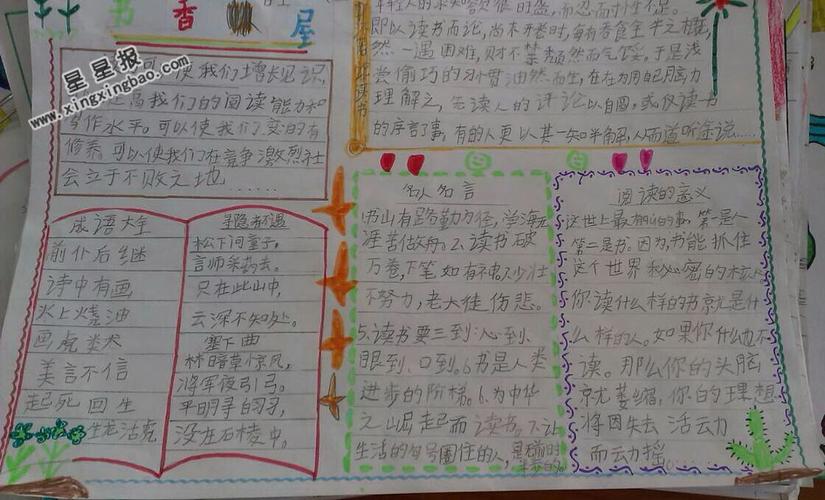 书香 屋
星星报
xingxingbao.com
可以使我们增长见识,
提高我们的阅读能力和
写作水平。可以使我们变的有
修养可以使我们在竞争激烈社
会立于不败之地……
即以读书而论,尚未开卷时,每有吞食全牛之概,
然一遇困难,则不禁颓然而气馁,于是浅
尝偷巧的习惯油然而生,在在为用自己脑力
理解之,去读人的评论以自圆,或仅读书
的序言了事,有的人更以其一知半解,从而道听途说……
成语大全
前仆后继
诗中有画
火上烧油
画虎类犬
美言不信
起死回生
生龙活虎
寻隐者不遇
松下问童子,
言师采药去。
只在此山中,
云深不知处。
塞下曲
林暗草惊风,
将军夜引弓。
平明寻白羽,
没在石棱中。
名人名言
书山有路勤为径,学海无
涯苦做舟。2.读书破
万卷,下笔如有神。少壮
不努力,老大徒伤悲。
5.读书要三到:心到、
眼到、口到。6.书是人类
进步的阶梯。6.为中华
之崛起而读书。7.让
生活的句号圈住的人,是
阅读的意义
这世上最 的事,第一是人
第二是书。因为,书能抓住
这个世界秘密的核心
你读什么样的书就是什
么样的人。如果你什么也不
读。那么你的头脑
就萎缩,你的理想
将因失去活力
而动摇……